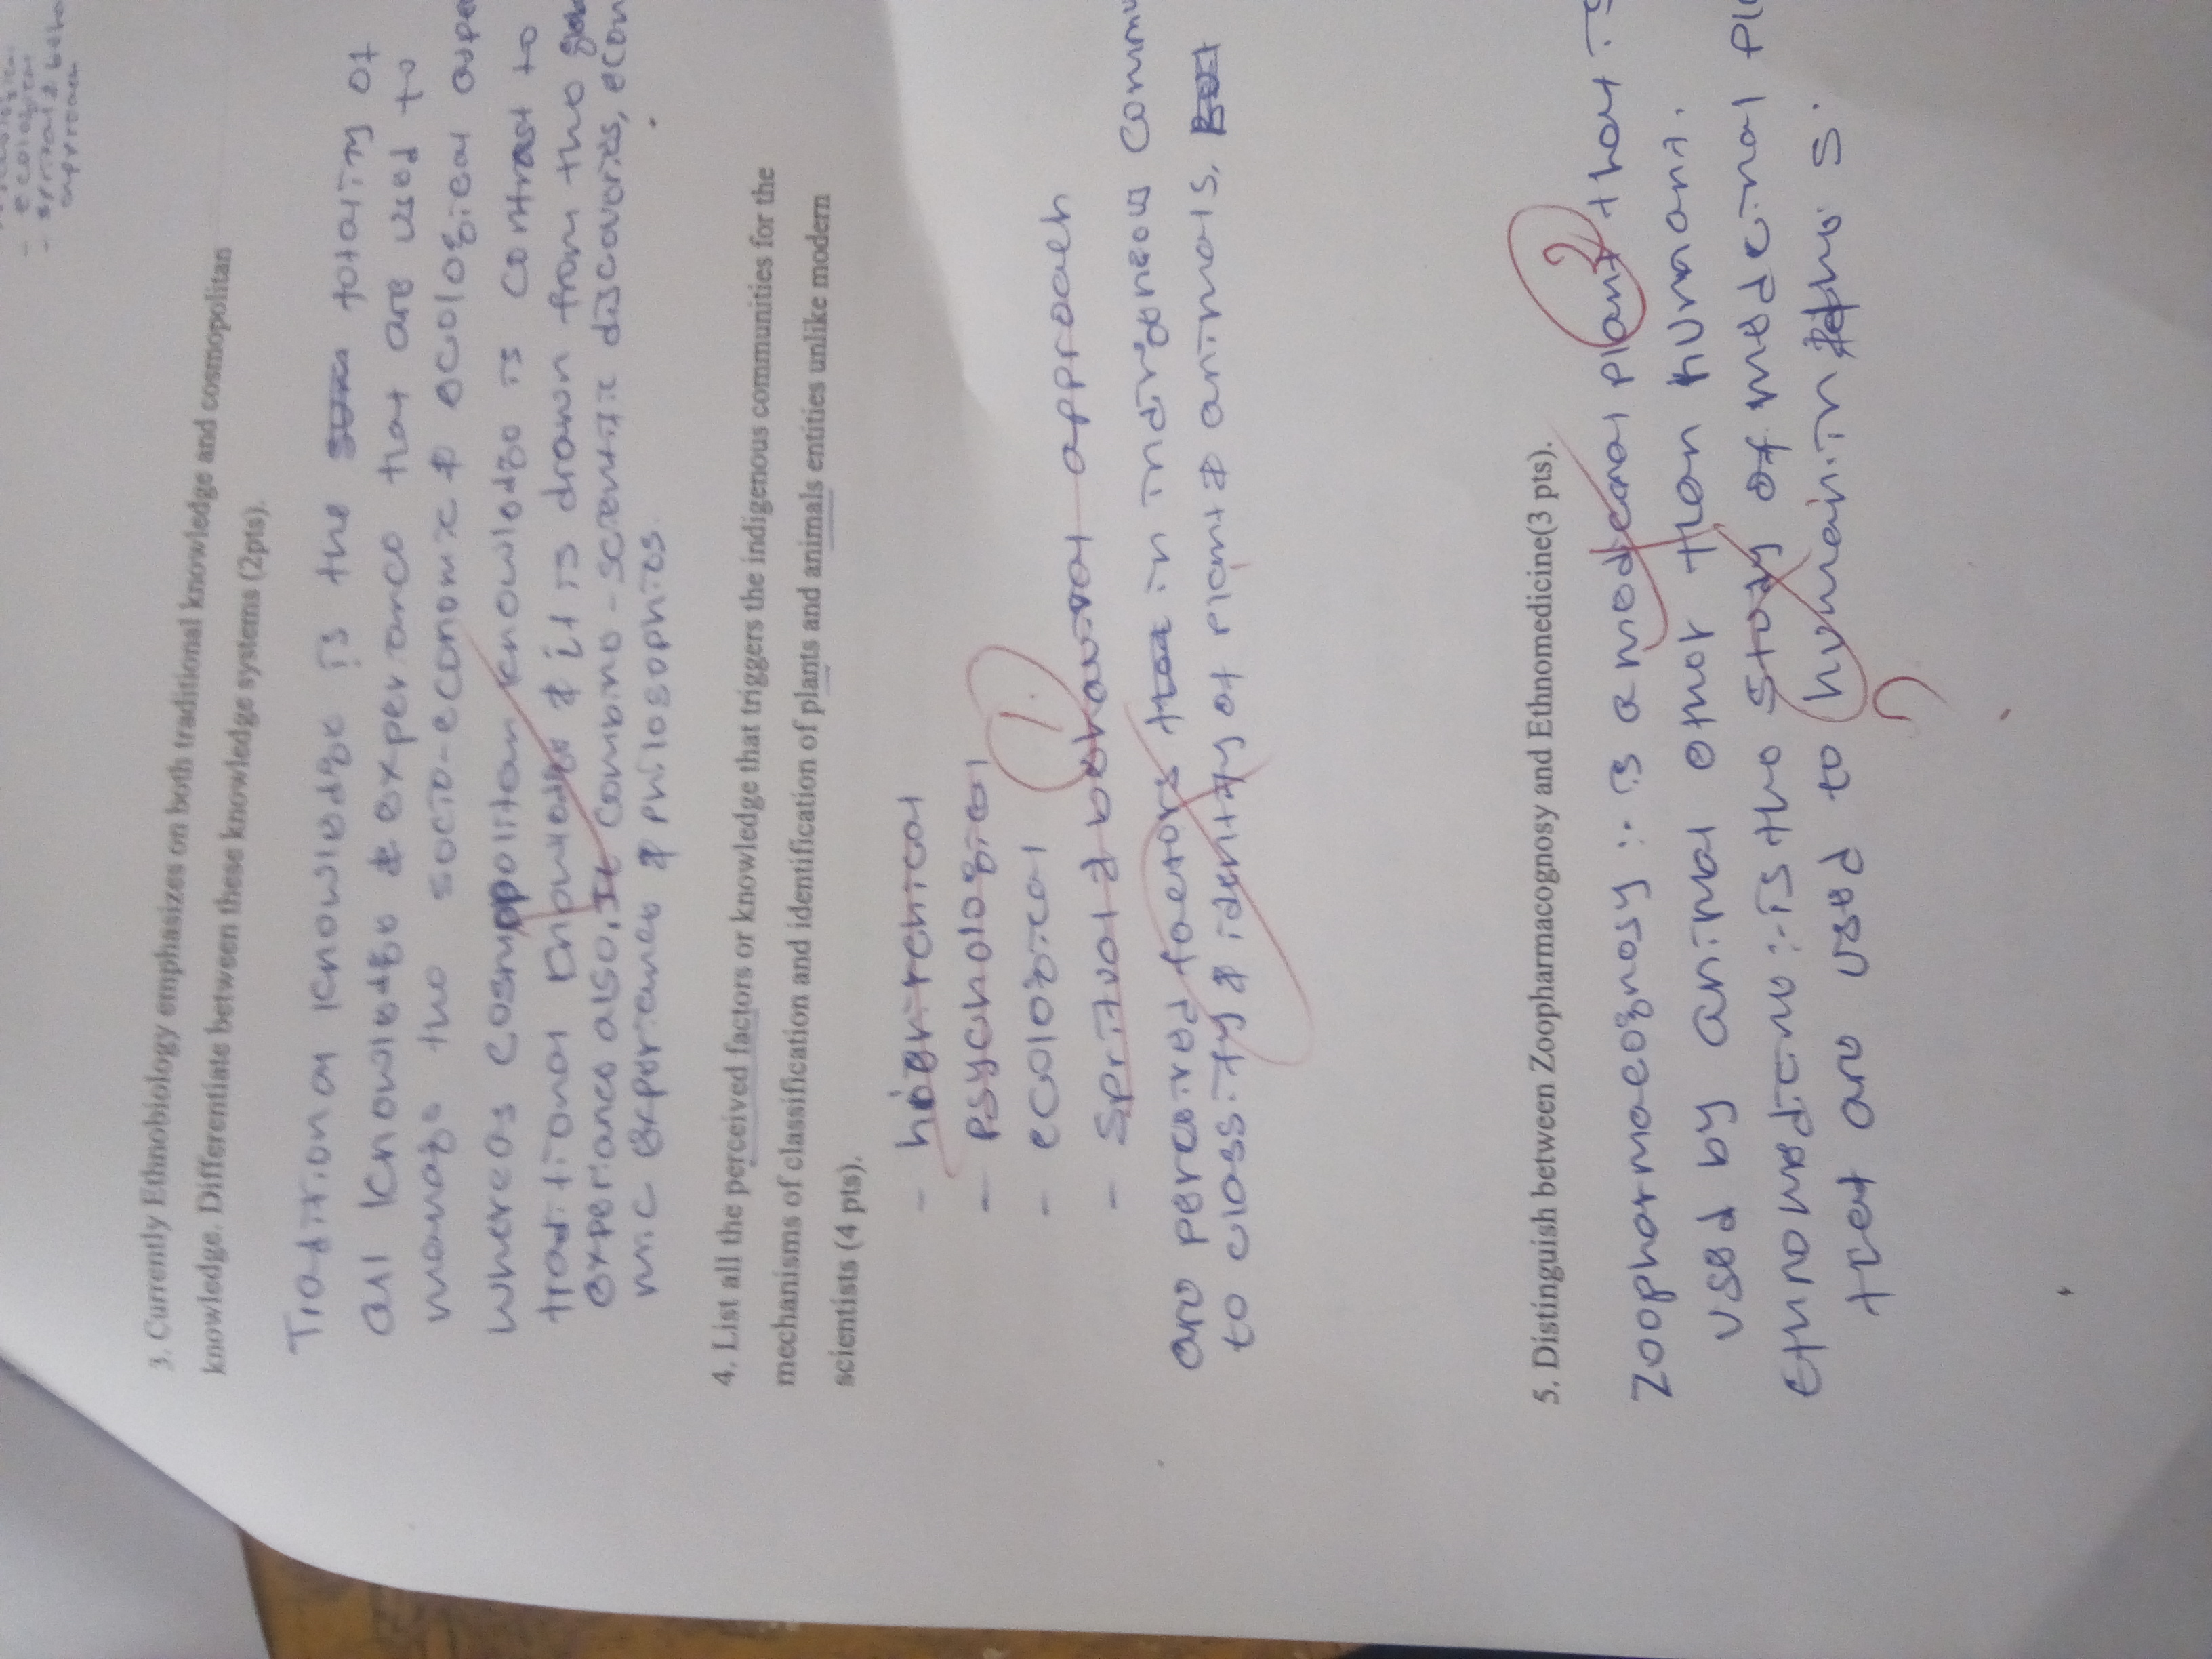 - ecological
approach
3. Currently Ethnobiology emphasizes on both traditional knowledge and cosmopolitan
knowledge. Differentiate between these knowledge systems (2pts).
Traditional knowledge is the totality of
all knowledge & experiance that are used to
manage the socio-economic & ecological aspe
whereas cosmopolitan knowledge is contrast to
traditional knowledge & it is drawn from the
experiance also. It combine - scientific discoveries, econ
mic experience & philosophies.
4. List all the perceived factors or knowledge that triggers the indigenous communities for the
mechanisms of classification and identification of plants and animals entities unlike modern
scientists (4 pts).
-
- psychological
1.
- ecological
- Spritual & behavioral approach
are perceived factors in indigeneous commu
to classify & identify of plant & animals.
5. Distinguish between Zoopharmacognosy and Ethnomedicine(3 pts).
2
Zoopharmacognosy :- is a medicinal plant that is
used by animal other than humans.
Ethnomedicine :- is the study of medicinal pl
that are used to human in
?